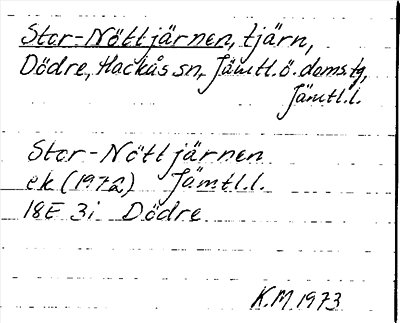 Stor-Nöttjärnen, tjärn,
Dödre, Hackås sn, Jämtl.ö. doms.tg,
Jämtl.l.
Stor-Nöttjärnen
ek (1972) Jämtl.l.
18E 3i Dödre
K.M. 1973